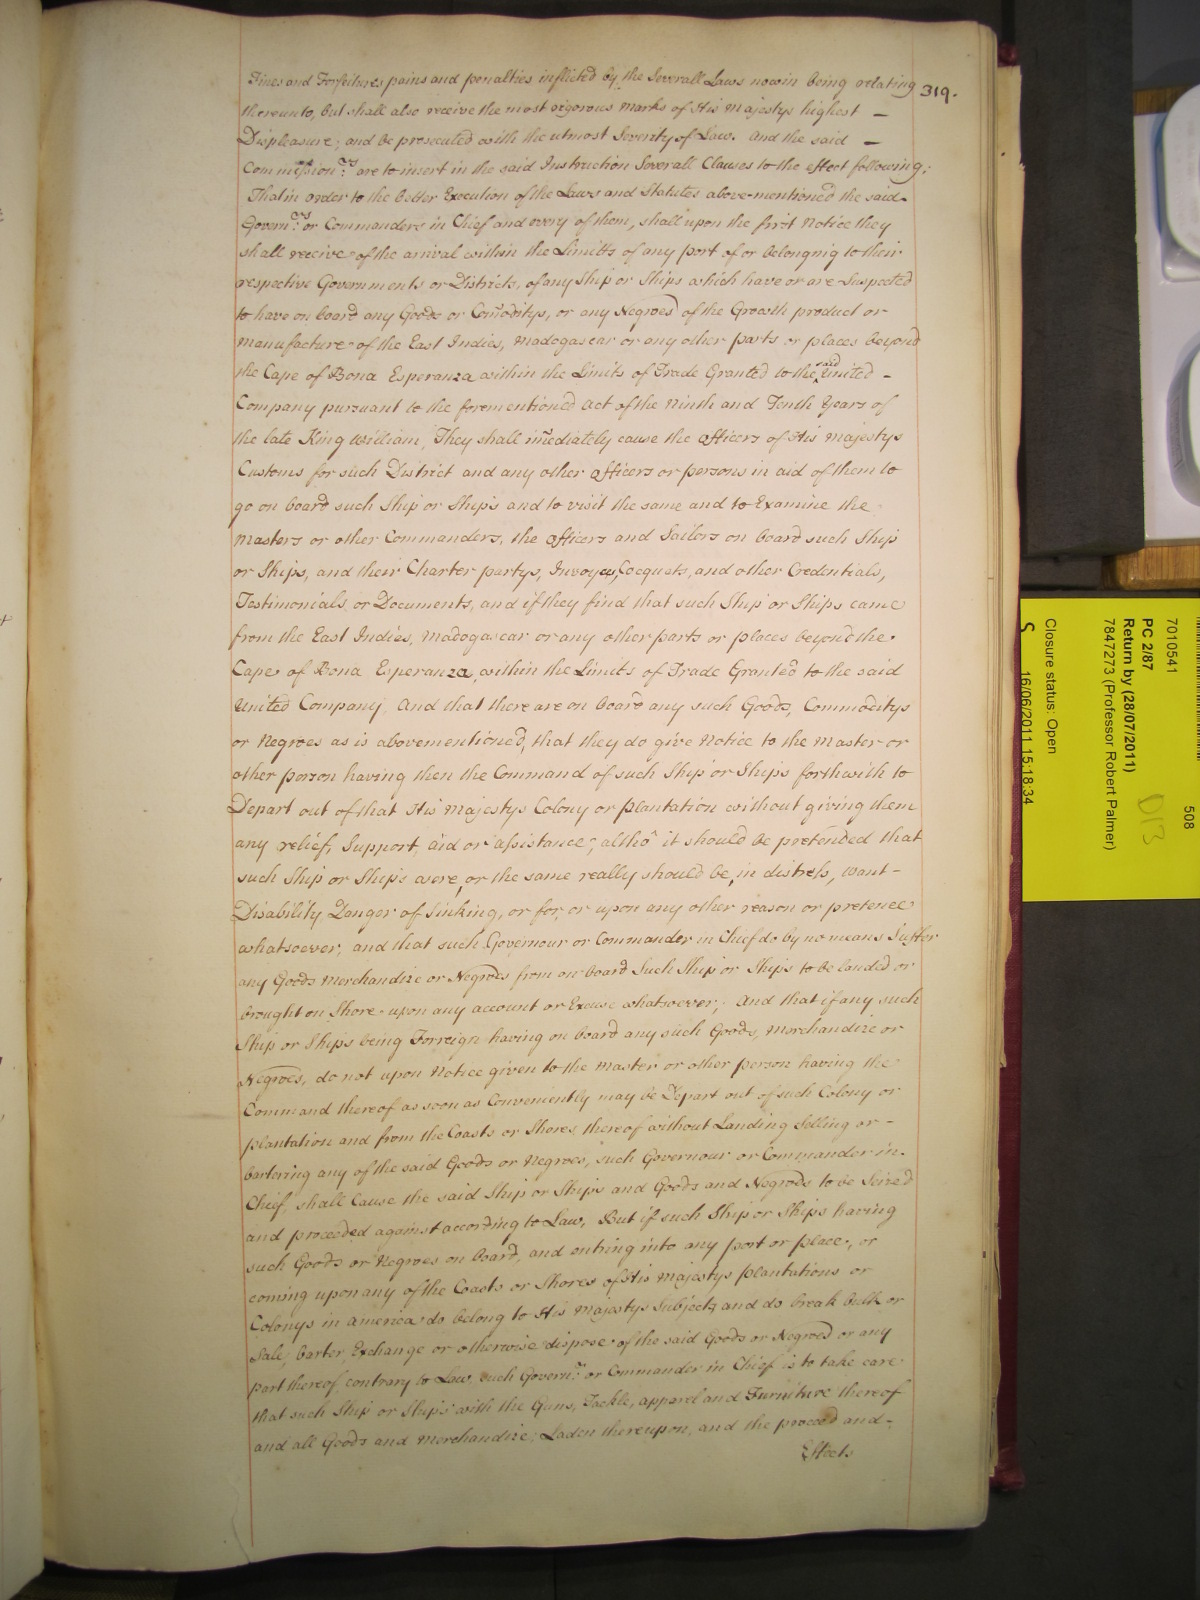 319.
Fines and Forfeitures pains and penalties inflicted by the Severall Laws now in being relating
thereunto, but shall also receive the most rigorous marks of His Majestys highest —
Displeasure; and be prosecuted with the utmost Severity of Law. And the said —
Commission.rs are to insert in the said Instruction Severall Clauses to the effect following;
That in order to the better Execution of the Laws and Statutes abovementioned the said
Govern.rs or Commanders in Chief and every of them, shall upon the first Notice they
shall receive of the arrival within the Limitts of any port of or belonging to their
respective Governments or Districts, of any Ship or Ships which have or are Suspected
to have on board any Goods or Com̃oditys, or any Negroes of the Growth product or
manufacture of the East Indies, Madagascar or any other parts or places beyond
the Cape of Bona Esperanza within the Limits of Trade Granted to the said United -
Company pursuant to the forementioned Act of the Ninth and Tenth Years of
the late King William, They shall im̃ediately cause the Officers of His Majestys
Customs for such District and any other Officers or persons in aid of them to
go on board such Ship or Ships and to visit the same and to Examine the
Masters or other Commanders, the Officers and Sailors on board such Ship
or Ships, and their Charter partys, Invoyces, Cocquets, and other Credentials,
Testimonials or Documents, and if they find that such Ship or Ships came
from the East Indies, Madagascar or any other parts or places beyond the
Cape of Bona Esperanza, within the Limits of Trade Granted to the said
United Company, And that there are on board any such Goods, Commoditys
or Negroes as is abovementioned, that they do give Notice to the Master or
other person having then the Command of such Ship or Ships forthwith to
Depart out of that His Majestys Colony or plantation without giving them
any relief, Support, aid or assistance; altho' it should be pretended that
such Ship or Ships were, or the same really should be, in distress, want -
Disability Danger of Sinking, or for, or upon any other reason or pretence
whatsoever, and that such Governour or Commander in Chief do by no means Suffer
any Goods Merchandize or Negroes from on board Such Ship or Ships to be landed or
brought on Shore upon any account or Excuse whatsoever; And that if any such
Ship or Ships being Forreign having on board any such Goods, Merchandize or
Negroes, do not upon Notice given to the Master or other person having the
Command thereof as soon as Conveniently may be Depart out of such Colony or
plantation and from the Coasts or Shores thereof without Landing Selling or -
bartering any of the said Goods or Negroes, such Governour or Commander in
Chief, shall Cause the said Ship or Ships and Goods and Negroes to be Seized
and proceeded against according to Law, But if such Ship or Ships having
such Goods or Negroes on board, and entring into any port or place, or
coming upon any of the Coasts or Shores of His Majestys plantations or
Colonys in America do belong to His Majestys Subjects and do break bulk or
Sale, barter, Exchange or otherwise dispose of the said Goods or Negroes or any
part thereof contrary to Law such Govern.r or Commander in Chief is to take care
that such Ship or Ships with the Guns, Tackle, apparel and Furniture thereof
and all Goods and Merchandize, Laden thereupon, and the proceed and -
Effects
7010541
PC 2/87
Return by (28/07/2011)
7847273 (Professor Robert Palmer)
Closure status: Open
S
16/06/2011 15:18:34
508
D13